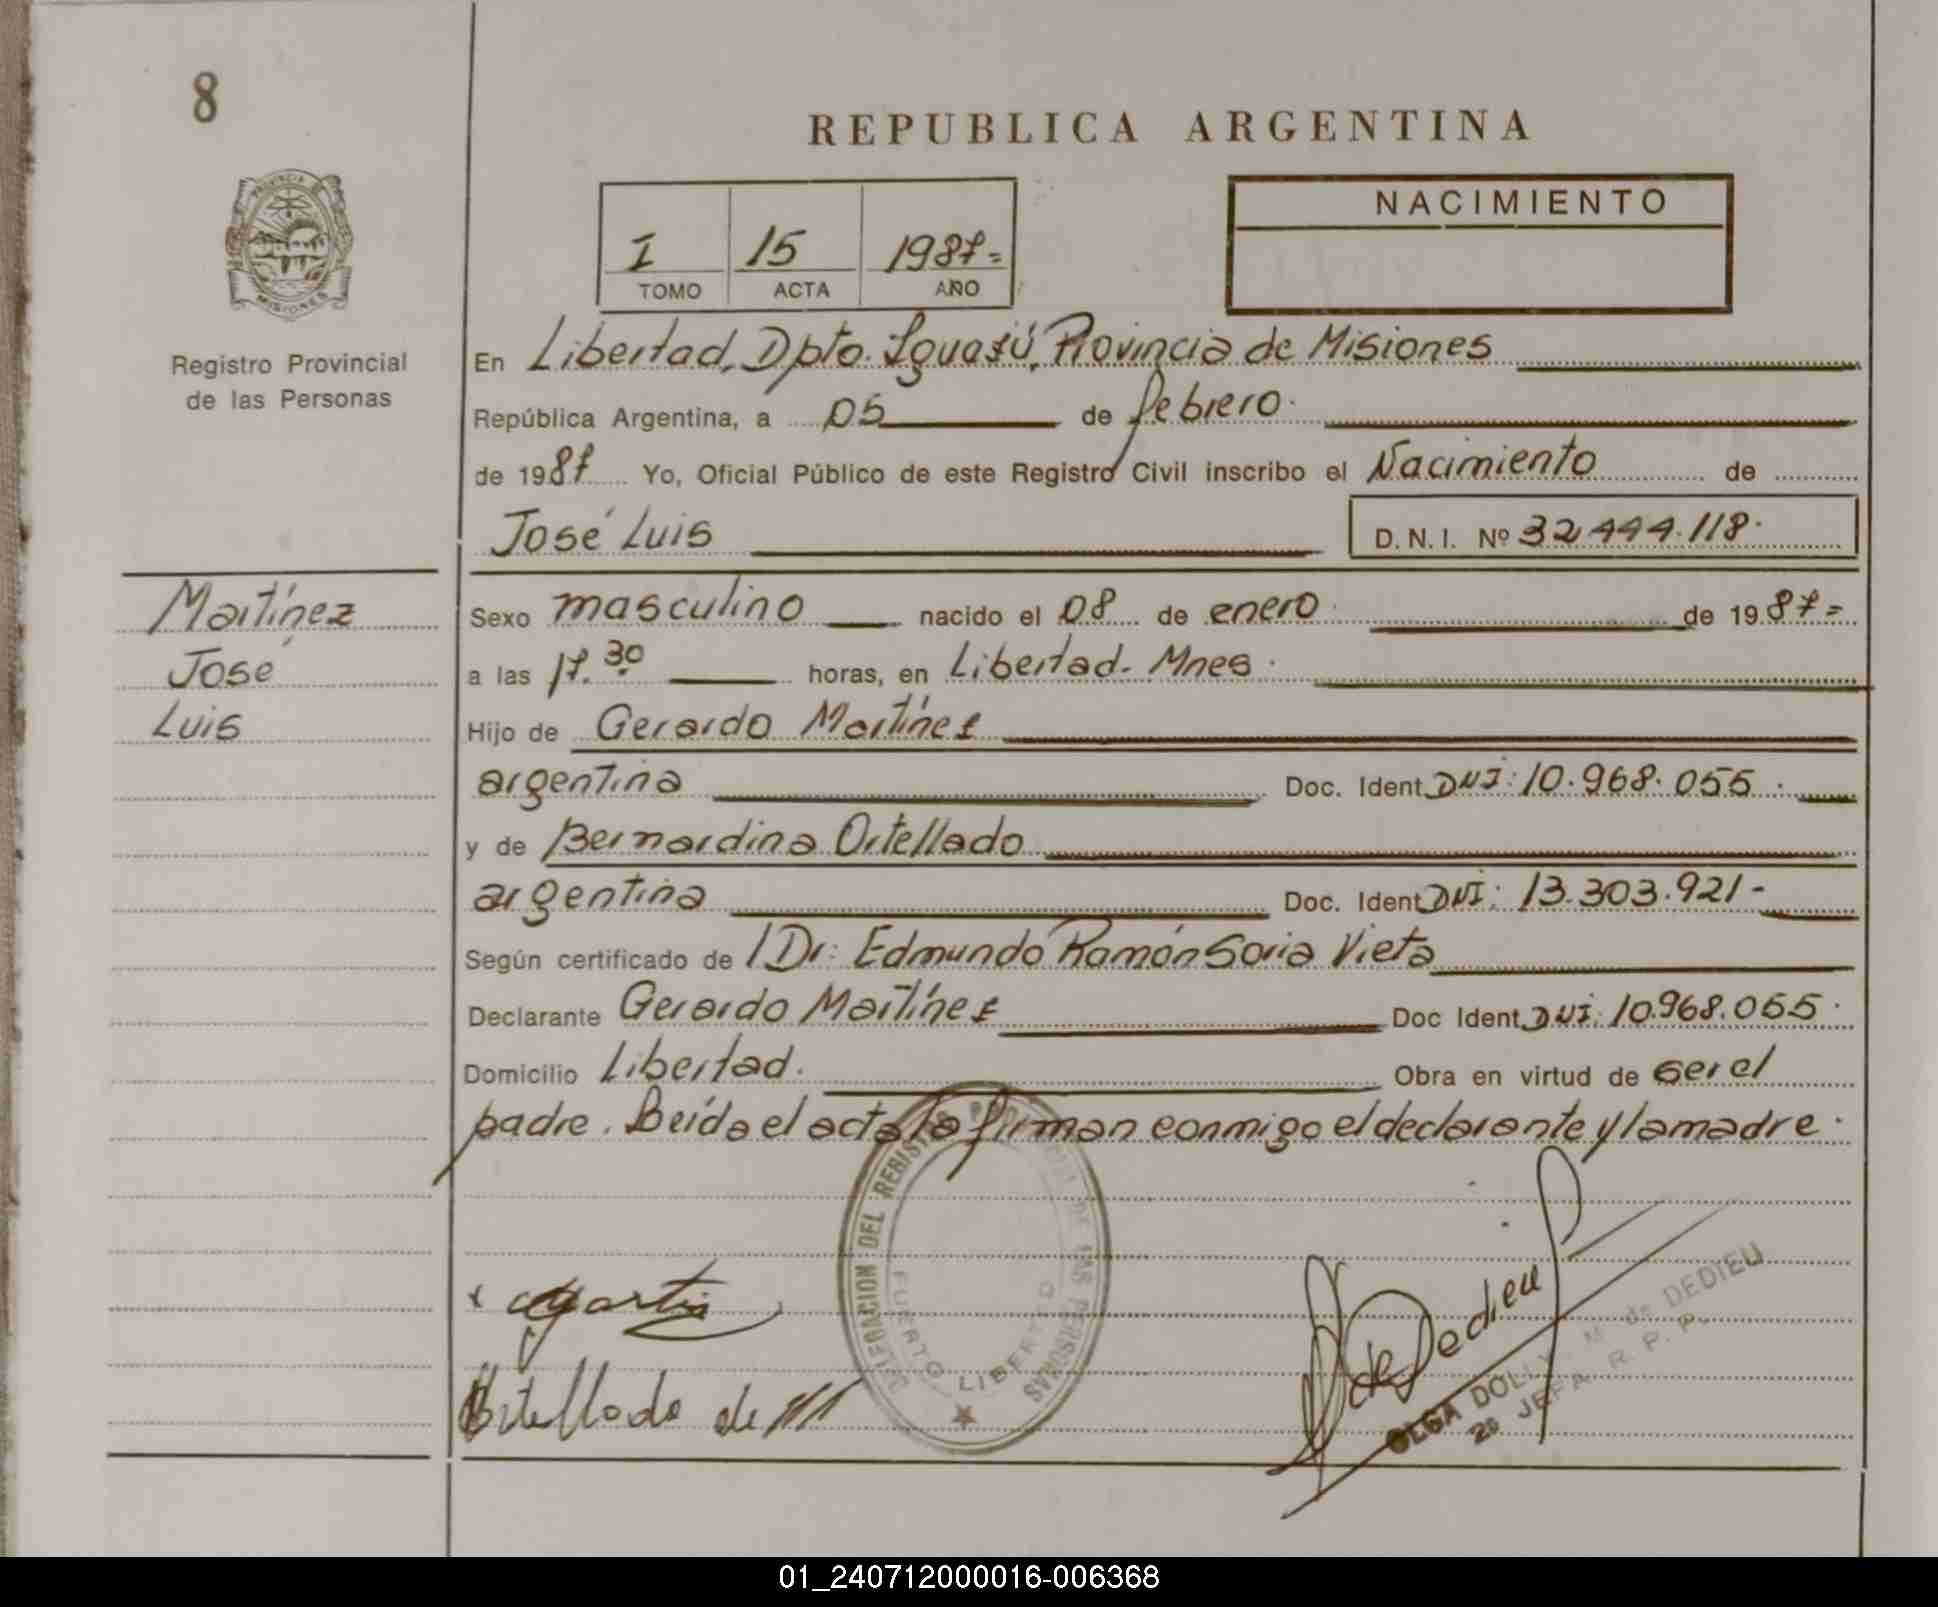 8
REPUBLICA ARGENTINA
PROVINCIA DE
MISIONES
NACIMIENTO
I 15 1987=
TOMO ACTA AÑO
Registro Provincial
de las Personas
En Libertad, Dpto. Iguazú, Provincia de Misiones
República Argentina, a 05 de febrero.
de 1987 Yo, Oficial Público de este Registro Civil inscribo el Nacimiento de
José Luis D.N.I. Nº 32.444.118.
Martínez
José
Luis
Sexo masculino nacido el 08 de enero. de 1987=
a las 17.30 horas, en Libertad. Mnes.
Hijo de Gerardo Martínez
argentina Doc. Ident DNI: 10.968.055.
y de Bernardina Ortellado
argentina Doc. Ident DNI: 13.303.921-
Según certificado de Dr: Edmundo Ramón Soria Vieta
Declarante Gerardo Martínez Doc Ident DNI: 10.968.055.
Domicilio Libertad. Obra en virtud de ser el
padre. Leída el acta la firman conmigo el declarante y la madre.
DELEGACION DEL REGISTRO PROVINCIAL DE LAS PERSONAS
PUERTO LIBERTAD
Ortellado de M
de Dedieu
OLGA DOLLY M. de DEDIEU
2º JEFA R. P. P.
01_240712000016-006368